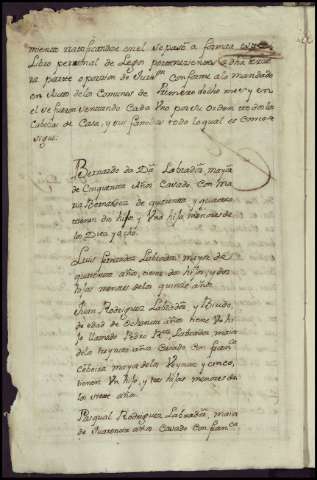 miento ratificandose en el se pasó a formar
Libro personal de Legos pertenecientes a dha tercera
parte o porcion de Jurisn. conforme a lo mandado
en Auto de lo Comunes de Primero dicho mes y en
el se fueron sentando Cada Uno por su Orden todos los
Cabezas de Casa, y sus familias todo lo qual es como se
sigue:
Bernardo da Labrador, maior
de Cinquenta Años Casado Con Ma
ria Bernarda de quarenta y quatro
tienen dos hijos y Una hija menores de
los Diez y ocho.
Luis fernandez Labrador maior de
quarenta años, tiene dos hijos, y dos
hijas menores de los quinze años.
Juan Rodriguez Labrador, y Viudo,
de edad de Ochenta años tiene Un hi
jo llamado Pedro Labrador maior
de los treynta años Casado con franca.
maior de los Veynte, y cinco,
tienen Un hijo, y tres hijas menores de
los siete años.
Pasqual Rodriguez Labrador, maior
de quarenta años Casado con franca.